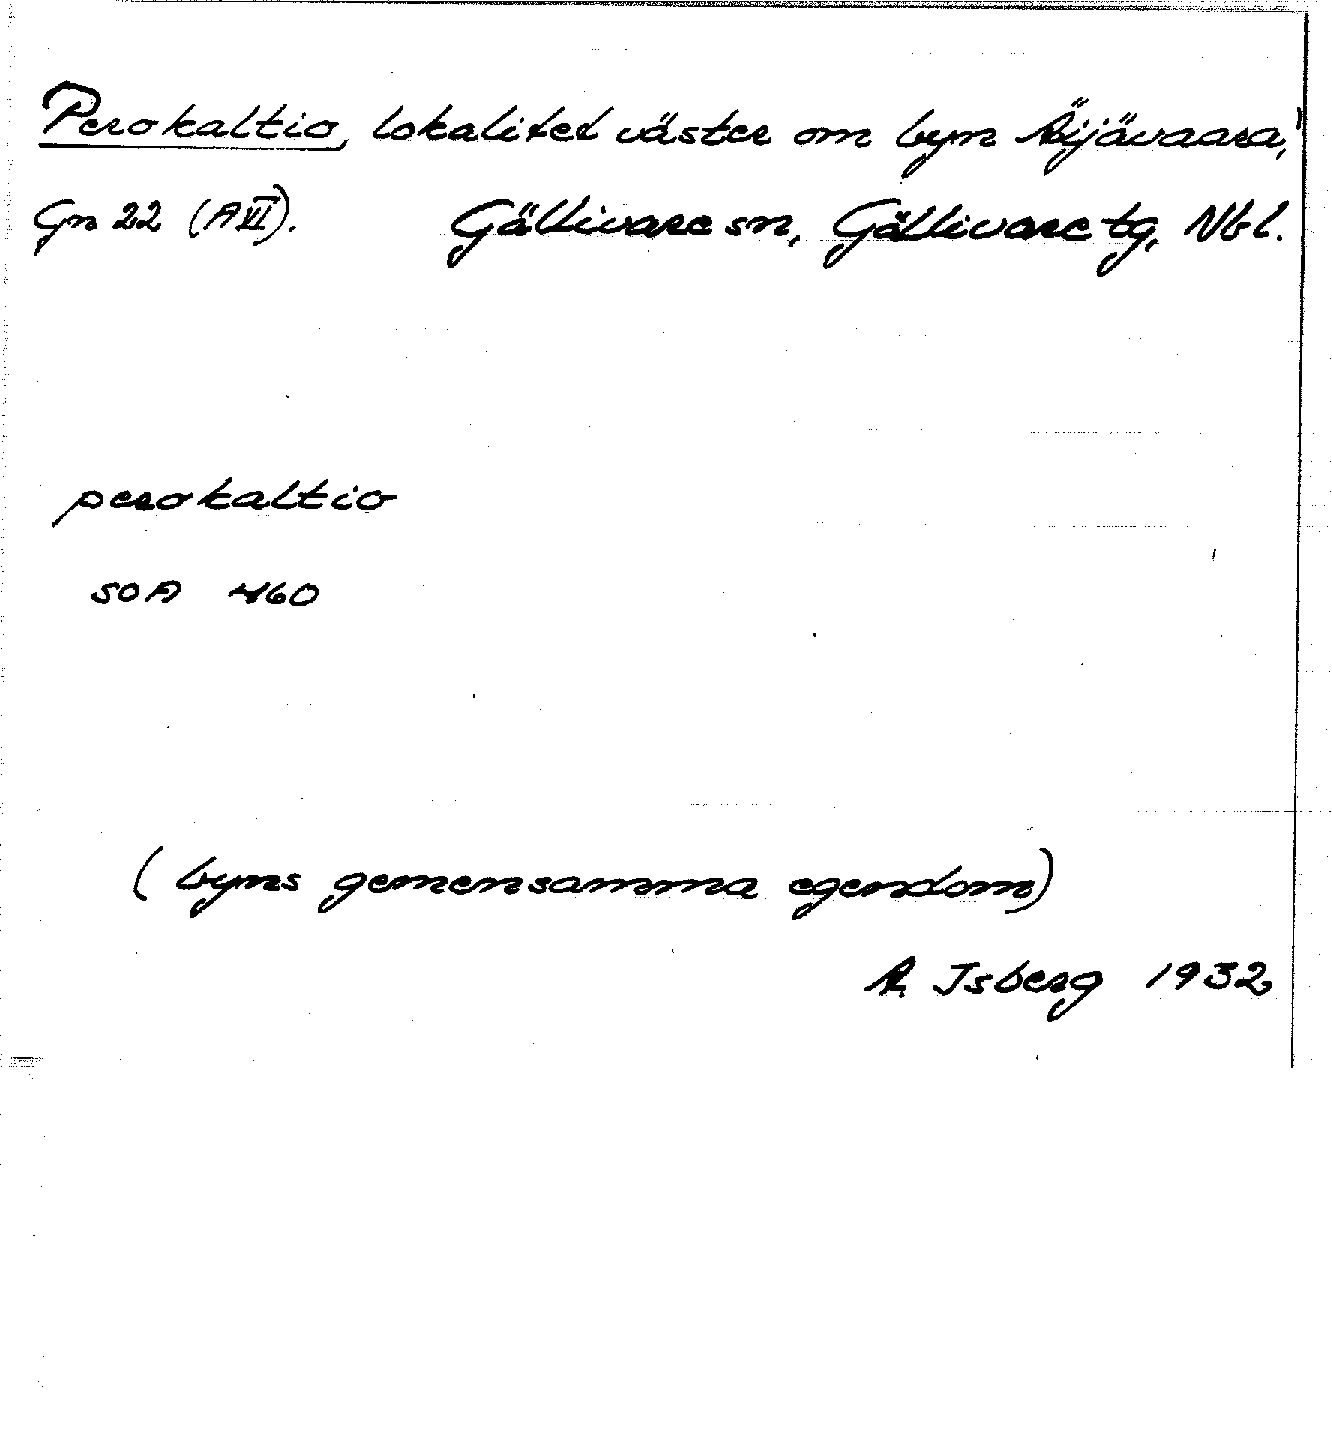 Perokaltio, lokalitet väster om byn Äijävaara,
Gn 22 (A VII). Gällivare sn, Gällivare tg, Nbl.
perokaltio
SOA 460
(byns gemensamma egendom)
A. Isberg 1932